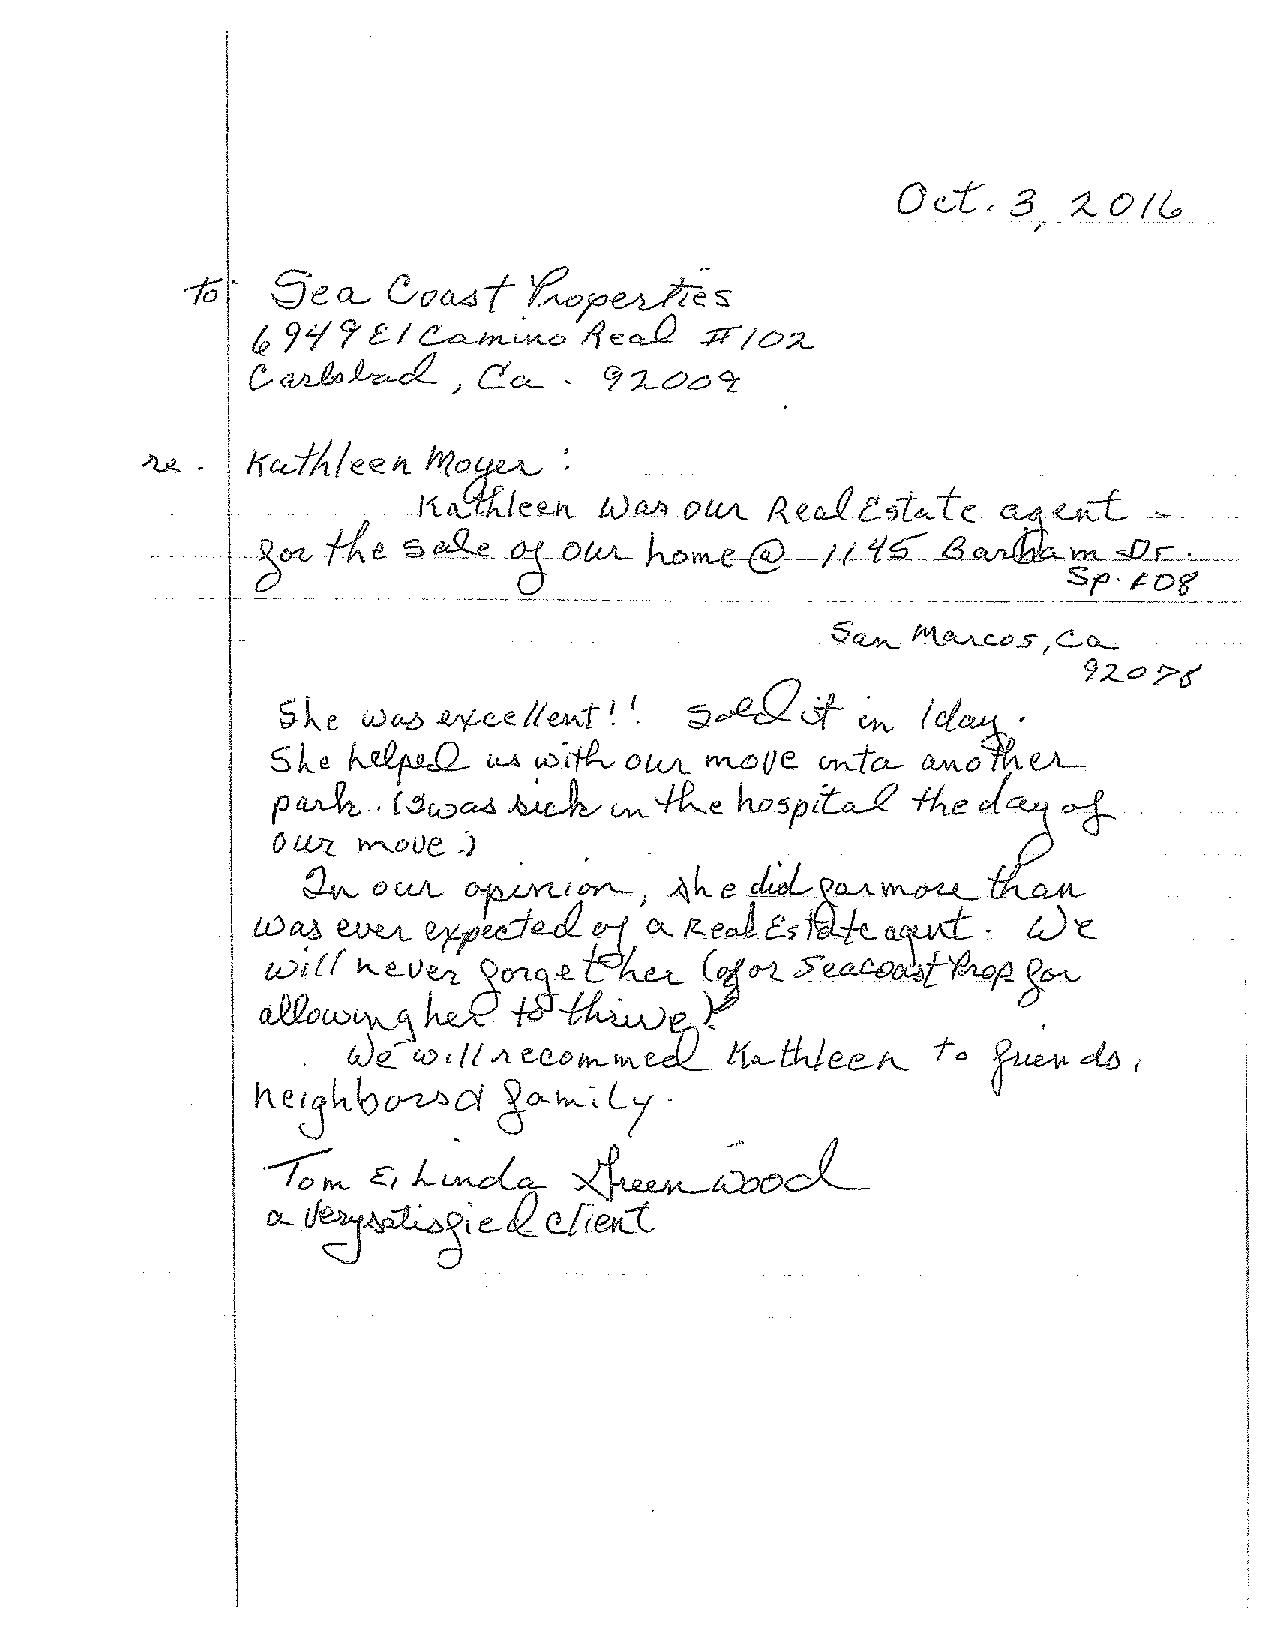 Oct. 3, 2016
To Sea Coast Properties
6949 El Camino Real #102
Carlsbad, Ca. 92009
re. Kathleen Moyer:
Kathleen was our Real Estate agent -
for the sale of our home @ 1145 Barham Dr.
Sp. 108
San Marcos, Ca
92078
She was excellent!! Sold it in 1 day.
She helped us with our move into another
park. (I was sick in the hospital the day of
our move.)
In our opinion, she did far more than
was ever expected of a Real Estate agent. We
will never forget her (of or Seacoast Prop for
allowing her to thrive)
We will recommed Kathleen to friends,
neighbors &amp; family.
Tom & Linda Greenwood
a very satisfied client